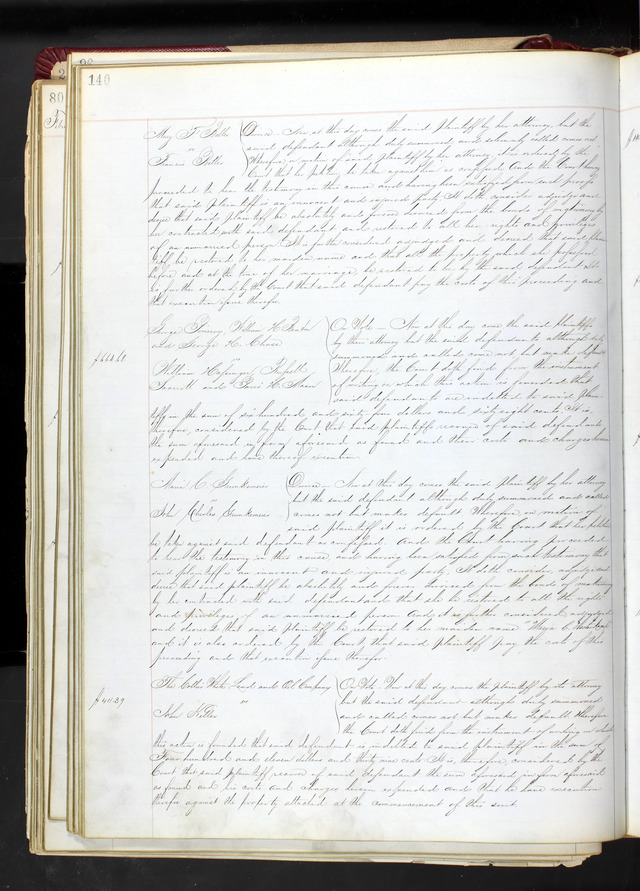 140
80
May T.
vs
Divorce Now at this day comes the said Plaintiff by her attorney but the
said defendant although duly summoned and solemnly called comes not
Wherefore on motion of said Plaintiff by her attorney it is ordered by the
Court that her petition be taken against him as confessed And the Court having
proceeded to hear the testimony in this cause and having been satisfied from such proofs
that said Plaintiff is an innocent and injured party It doth consider adjudge and
decree that said plaintiff be absolutely and forever divorced from the bonds of matrimony by
her contracted with said defendant and restored to all her rights and privileges
of an unmarried person It is further considered adjudged and decreed that said plain
tiff be restored to her maiden name and that all the property which she possessed
before and at the time of her marriage, be restored to her by the said defendant It
is further ordered by the Court that said defendant pay the costs of this proceeding and
that execution issue therefor
George William H.
and George H. Chase
vs
William
and H.
On Note Now at this day come the said plaintiffs
by their attorney but the said defendants although duly
summoned and called come not but make default
Wherefore, the Court doth find from the instrument
of writing on which this action is founded that
said defendants are indebted to said plain
tiffs in the sum of six hundred and sixty four dollars and sixty eight cents It is
therefore, considered by the Court that said plaintiffs recover of said defendants
the sum aforesaid in form aforesaid as found and their costs and charges herein
expended and have thereof execution
C.
vs
John Charles
Divorce Now at this day comes the said Plaintiff by her attorney
but the said defendant although duly summoned and called
comes not but makes default Wherefore on motion of
said plaintiff it is ordered by the Court that her petition
be taken against said defendant as confessed And the Court having proceeded
to hear the testimony in this cause and having been satisfied from such testimony that
said plaintiff is an innocent and injured party It doth consider adjudge and
decree that said plaintiff be absolutely and forever divorced from the bonds of matrimony
by her contracted with said defendant and that she be restored to all the rights
and privileges of an unmarried person And it is further considered adjudged
and decreed that said plaintiff be restored to her maiden name
and it is also ordered by the Court that said plaintiff pay the costs of this
proceeding and that execution issue therefor
$411.39
The Collier White Lead and Oil Company
vs
John
On Note Now at this day comes the plaintiff by its attorney
but the said defendant although duly summoned
and called comes not but makes default Wherefore
the Court doth find from the instrument of writing on which
this action is founded that said defendant is indebted to said plaintiff in the sum of
Four hundred and eleven dollars and thirty nine cents It is, therefore, considered by the
Court that said plaintiff recover of said defendant the sum aforesaid in form aforesaid
as found and its costs and charges herein expended and that it have execution
therefor against the property attached at the commencement of this suit